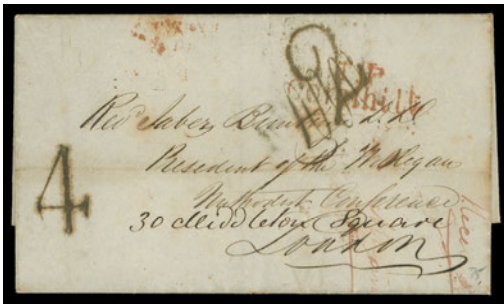 Revd Jabez Bunting D.D.
President of the Wesleyan
Methodist Conference
30 Middleton Square
London
4